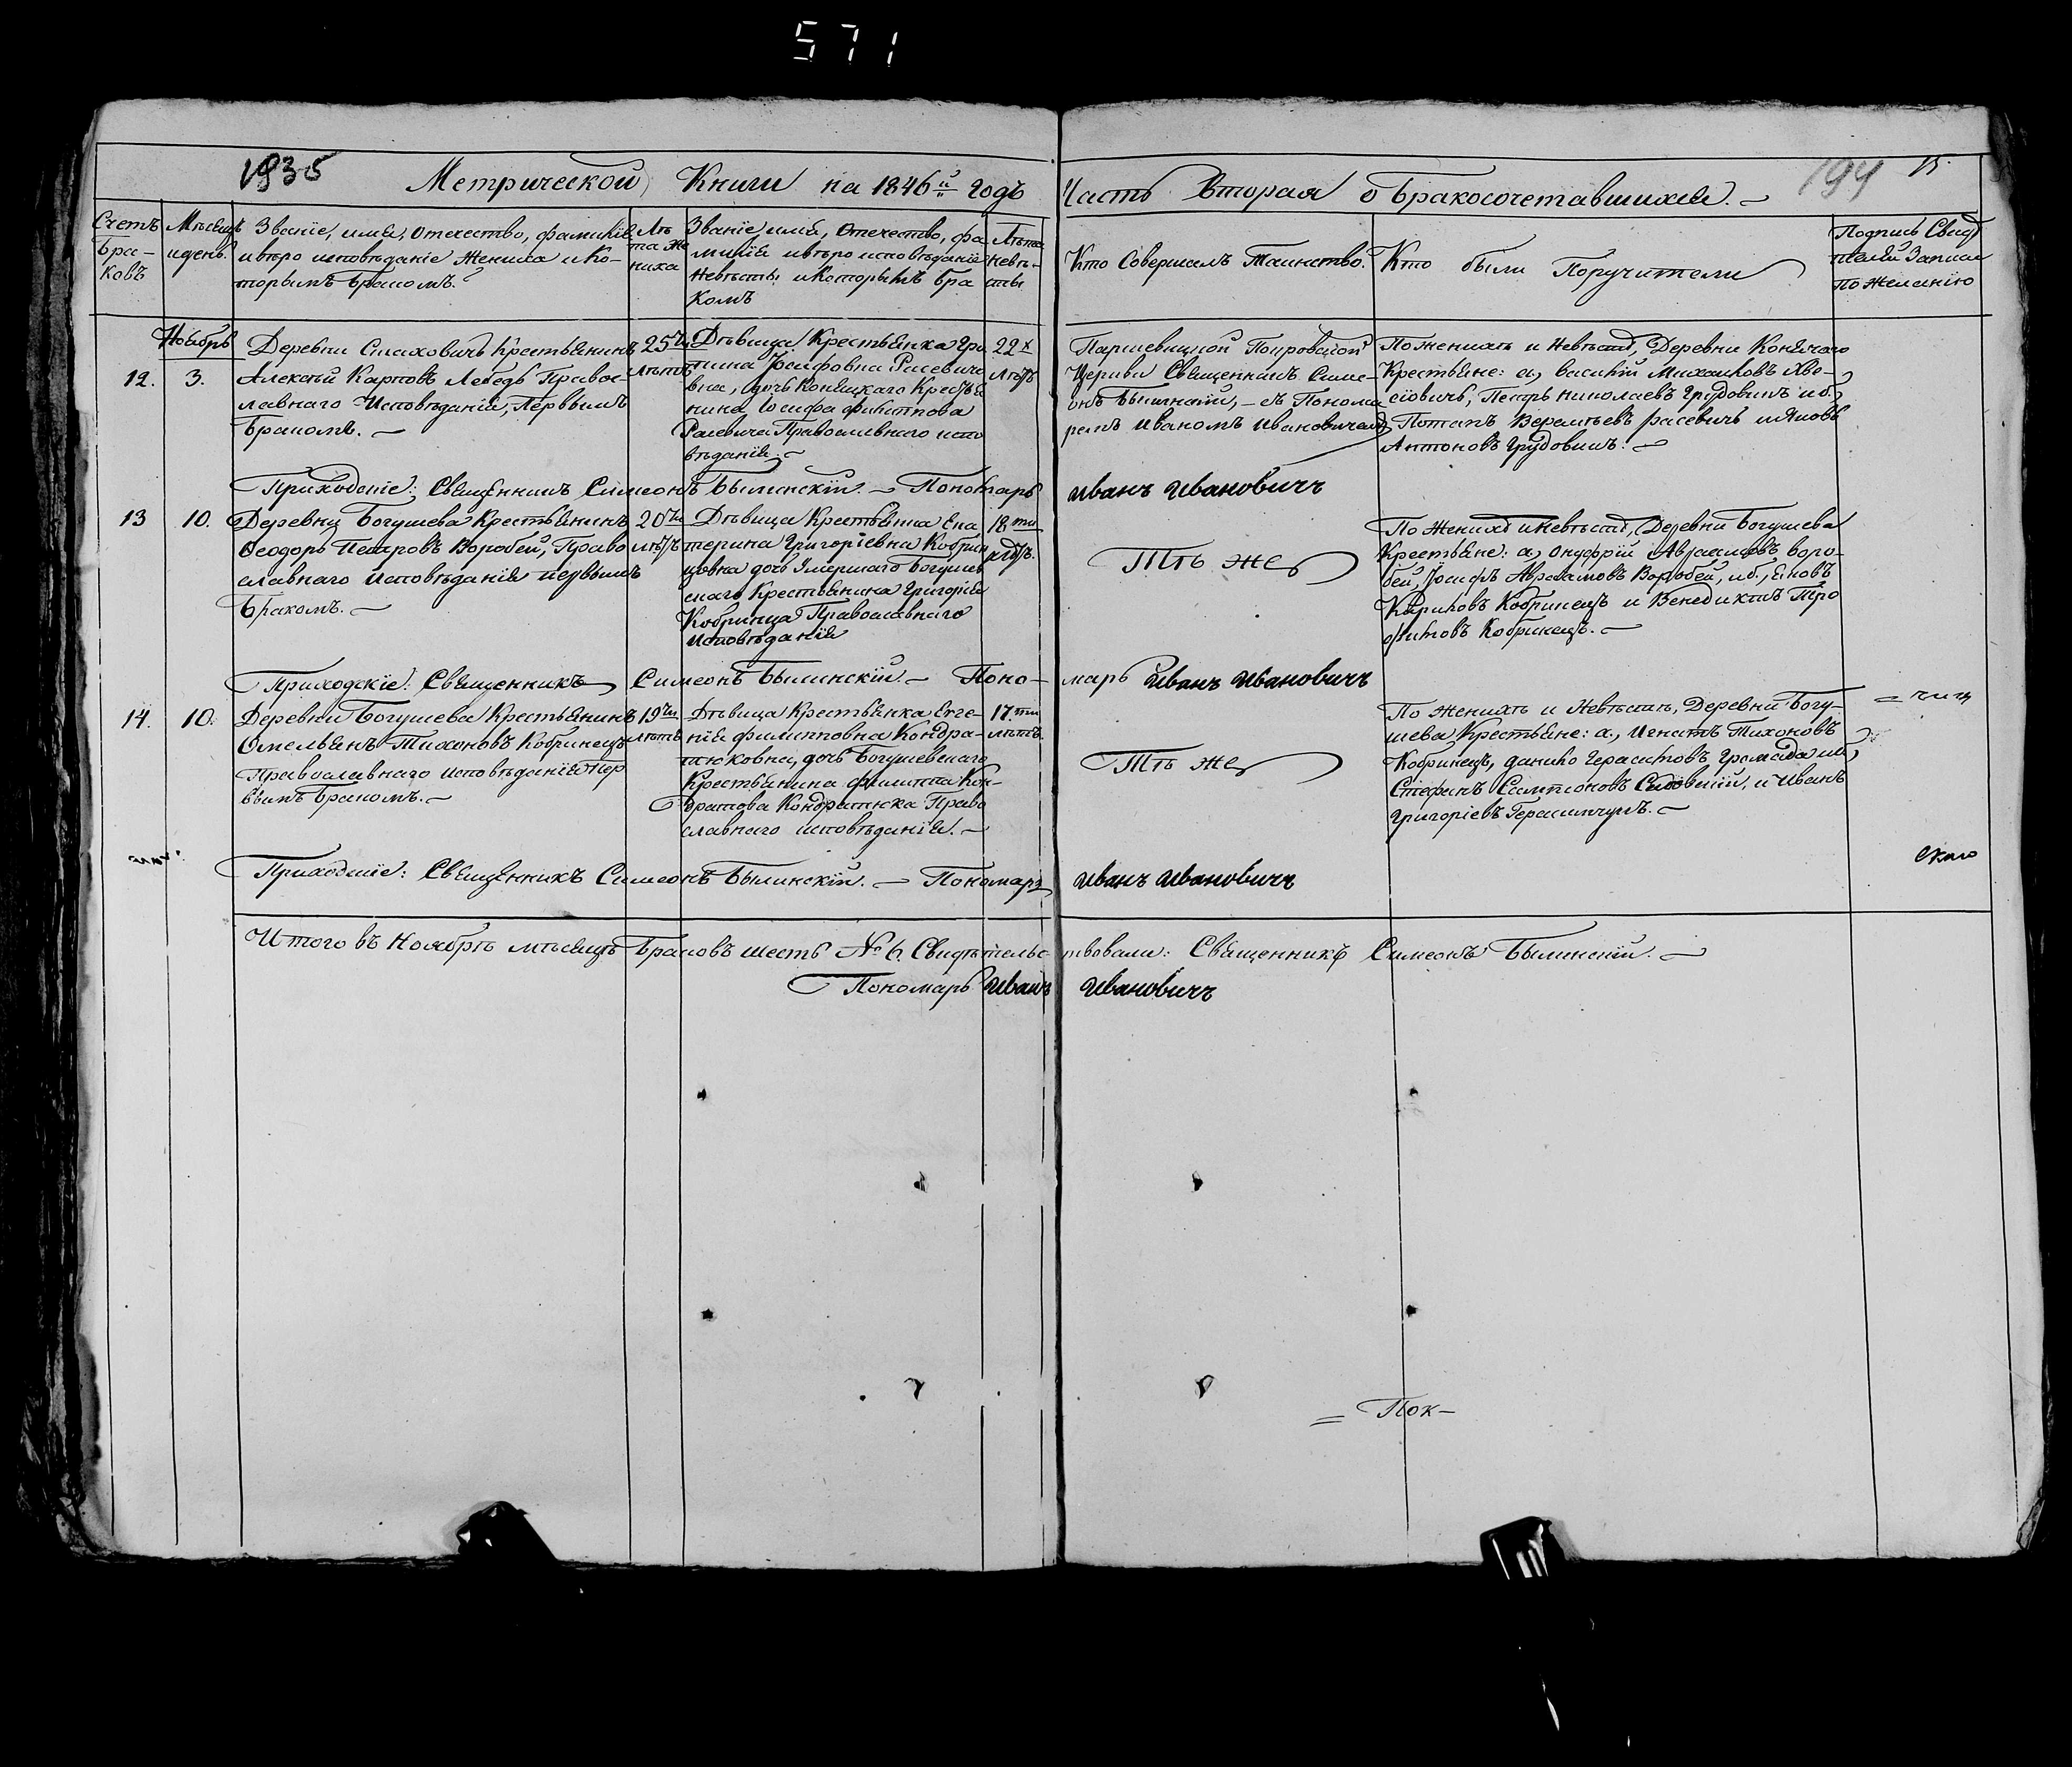 571
1935 Метрической Книги на 1846й годъ Часть Вторая о бракосочетавшихся. 194 15.
Счетъ Бра-
ковъ
Мѣсяцъ
и день.
Званіе, имя, Отечество, фамилія
и вѣро исповѣданіе Жениха и Ко-
торымъ бракомъ?
Лѣ
та Же
ниха
Званіе имя, Отечество, фа
милія и вѣро исповѣданіе
Невѣсты и Которымъ Бра
комъ
Лѣта
Невѣ-
сты
Кто Совершалъ Таинство?
Кто были Поручители
Подпись Свид
телей Записи
по Желанію
Ноябрь
12. 3.
Деревни Стаховичъ Крестьянинъ
Алексѣй Карповъ Лебедь Правос-
лавнаго Исповѣданія, Первымъ
бракомъ. —
25
лѣтъ
Дѣвица Крестьянка
Іосифовна Расевичо
вна, дочь Конячкаго Крестья
нина Іосифа Филиппова
Расевича Православнаго испо
вѣданія. —
22х
лѣтъ
Паршевицкой Покровской
Церкви Священникъ Симе-
онъ Былинскій, — съ Понома
ремъ Иваномъ Ивановичемъ
По женихѣ и Невѣстѣ, Деревни Конячаго
Крестьяне: а, василій Михаиловъ
Петръ Николаевъ Грудовикъ и б.
Потапъ Расевичь и Яковъ
Антоновъ Грудовикъ. —
Приходскіе: Священникъ Симеонъ Былинскій. — Пономарь Иванъ Ивановичъ
13 10.
Деревни Богушева Крестьянинъ
Ѳеодоръ Петровъ Воробей, Право
славнаго Исповѣданія первымъ
Бракомъ. —
20ти
лѣтъ
Дѣвица Крестьянка Ека
терина Григоріевна Кобрин
цовна дочь Умершаго Богушев
скаго Крестьянина Григорія
Кобринца Православнаго
Исповѣданія
18ти
лѣтъ.
Тѣ же
По Женихѣ и невѣстѣ, Деревни Богушева
Крестьяне: а, Онуфрій Авраамовъ Воро-
бей, Іосифъ Аврамовъ Воробей, и б, Яковъ
Кириловъ Кобринецъ и Венедиктъ Тро
фимовъ Кобринецъ. —
Приходскіе: Священникъ Симеонъ Былинскій. — Поно- марь Иванъ Ивановичъ
14. 10.
Деревни Богушева Крестьянинъ
Омельянъ Тихоновъ Кобринецъ
Православнаго исповѣданія Пер
вымъ бракомъ. —
19ти
лѣтъ
Дѣвица Крестьянка Евге-
нія Филипповна Кондра-
тюковна, дочь Богушевскаго
Крестьянина Филиппа Кон-
дратова Кондратюка Право
славнаго исповѣданія. —
17ти
лѣтъ.
Тѣ же
По женихѣ и Невѣстѣ, Деревни Богу-
шева Крестьяне: а, Игнатъ Тихоновъ
Кобринецъ, данило Герасимовъ Громада и б,
Стефанъ Сампсоновъ и Иванъ
Григоріевъ Герасимчукъ. —
Приходскіе: Священникъ Симеонъ Былинскій. — Пономарь Иванъ Ивановичъ
скаго
Итого въ Ноябрѣ мѣсяцѣ Браковъ шесть № 6. Свидѣтельс- твовали: Священникъ Симеонъ Былинскій. —
Пономарь Иванъ Ивановичъ
= Пок-